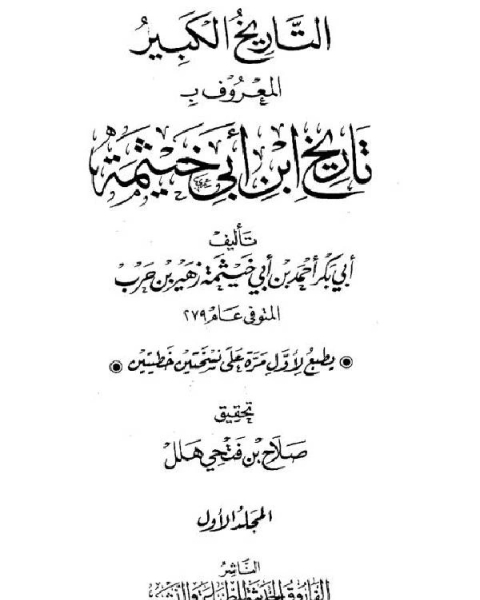 التَّارِيخُ الكَبِيرُ
المَعْرُوف بِـ
تَارِيخِ ابْنِ أَبِي خَيْثَمَة
تَأليف
أبي بَكْر أحْمَد بْن أبي خَيْثَمَة زُهَيْر بْن حَرْب
المتوفى عَام ٢٧٩
يطبع لأوَّلِ مَرَّة عَلَى نُسْخَتَيْن خَطِّيَّتَيْن
تحقيق
صَلَاح بْن فَتْحِي هَلَل
المجلد الأول
الناشِرُ
الفَارُوق الحَدِيثَة للطِّبَاعَة وَالنَّشْر